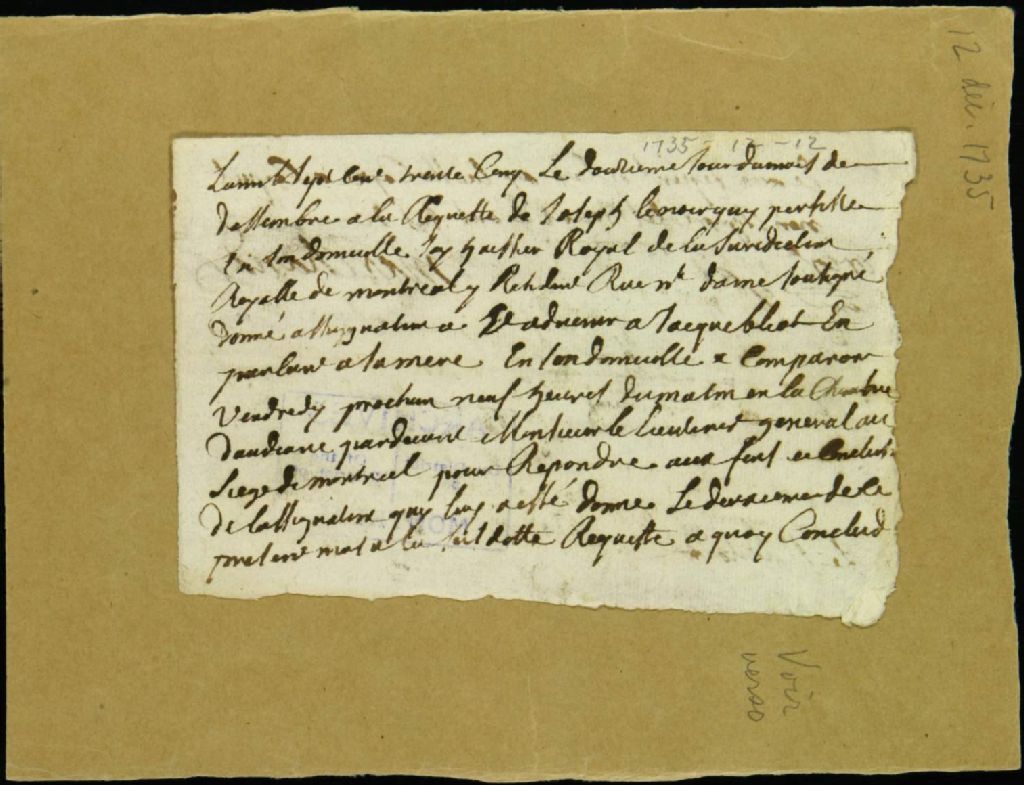 12 déc. 1735
1735-12-12
Lan sept Cent trente Cinq Le douzieme Jour du mois de
dessembre a la Requette de Joseph lenoir quy persiste
En son domicille Jay huissier Royal de la Juridiction
Royalle de montreal y Residant Rue nt dame soussigné
donné assignation a a Jacque En
parlant a sa mere En son domicille a Comparoir
Vendredy prochain neuf heures du matin en la Chambre
daudiance pardevant Monsieur le Lieutenant general au
siege de montreal pour Repondre aux fins et
de lassignation quy luy a esté donné Le de Ce
present mois a la ditte Requeste a quoy Conclud
Voir
verso